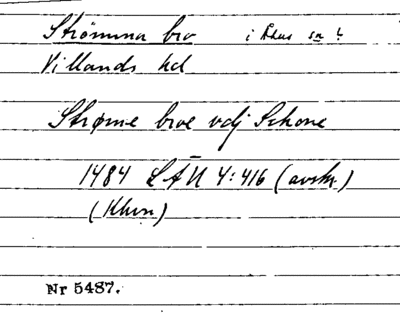 Strömma bro i Åhus sn?
Villands hd
Strøme broe vdj Schone
1484 LÄU 4:416 (avskr)
(Khvn)
Nr 5487.